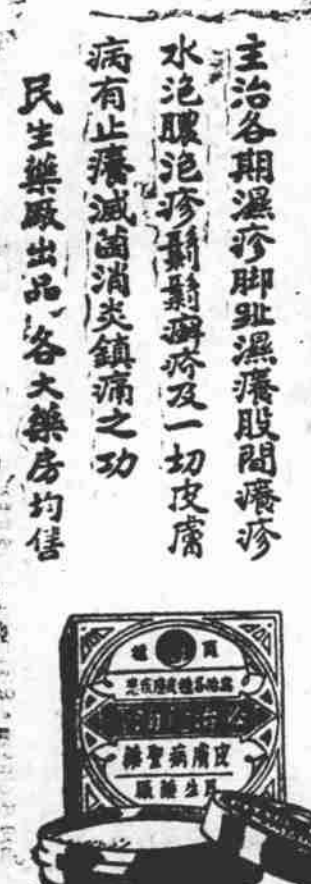 主治各期濕疹脚趾濕癢股間癢疹
水泡膿泡疹鬍鬚癬疥及一切皮膚
病有止癢滅菌消炎鎮痛之功
民生藥厰出品各大藥房均售
皮膚病聖藥
民生藥厰